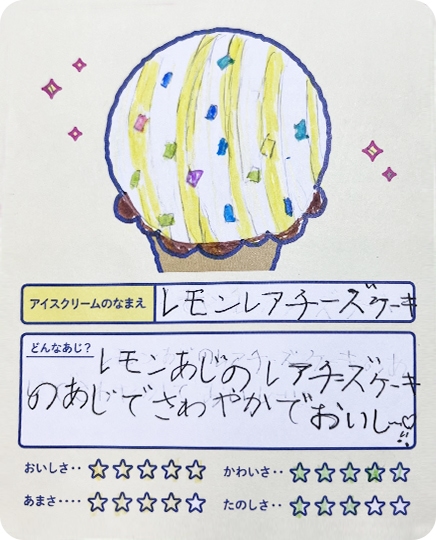 アイスクリームのなまえ
レモンレアチーズケーキ
どんなあじ?
レモンあじのレアチーズケーキ
のあじでさわやかでおいし〜♡!!
おいしさ‥ ☆☆☆☆☆
かわいさ‥ ☆☆☆☆☆
あまさ‥‥ ☆☆☆☆☆
たのしさ‥ ☆☆☆☆☆